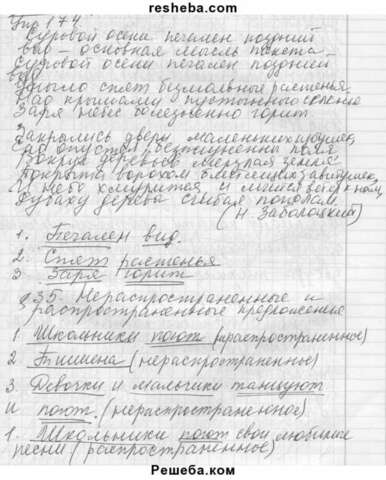 resheba.com
Упр 174.
Суровой осени печален поздний
вид – основная мысль текста
Суровой осени печален поздний
вид
Уныло спят безмолвные растенья.
Над крышами пустынного селенья
Заря небес болезненно горит
Закрылись двери маленьких
Сад опустел безжизненны поля
Вокруг деревьев мерзлая земля
Покрыта ворохом блестящих завитушек,
И небо хмурится, и мчится ветер к нам,
Рубаху дерева сгибая пополам.
(Н Заболоцкий)
1. Печален вид.
2. Спят растенья
3. Заря горит
§35. Нераспространенные и
распространенные предложения
1. Школьники поют (нераспространенное)
2. Тишина (нераспространенное)
3. Девочки и мальчики танцуют
и поют. (нераспространенное)
1. Школьники поют свои любимые
песни (распространенное)
Решеба.ком